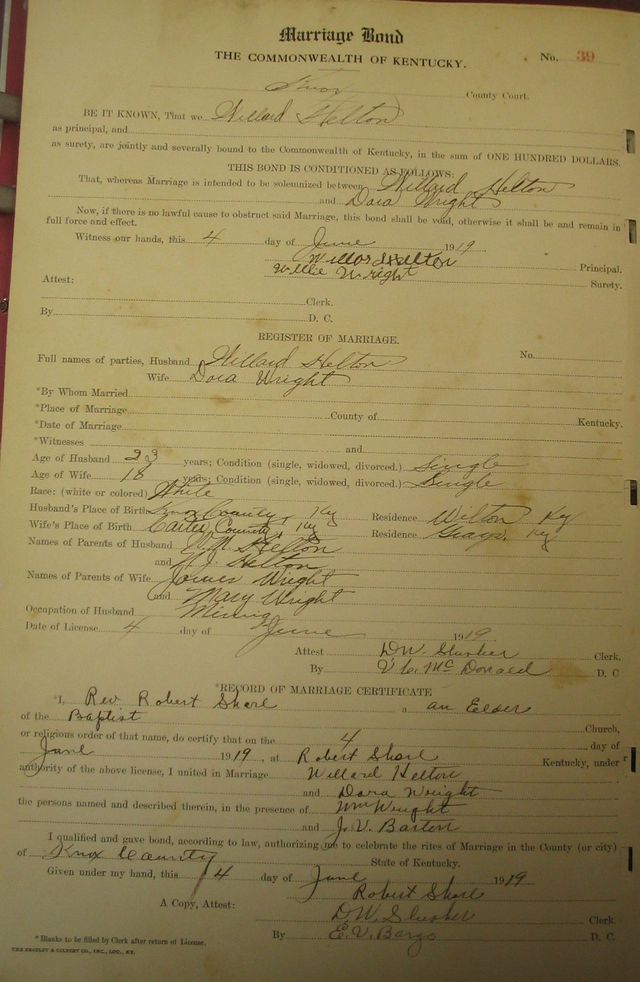 Marriage Bond
THE COMMONWEALTH OF KENTUCKY. No. 39
Knox County Court.
BE IT KNOWN, That we Willard Helton
as principal, and
as surety, are jointly and severally bound to the Commonwealth of Kentucky, in the sum of ONE HUNDRED DOLLARS.
THIS BOND IS CONDITIONED AS FOLLOWS:
That, whereas Marriage is intended to be solemnized between Willard Helton
and Dora Wright
Now, if there is no lawful cause to obstruct said Marriage, this bond shall be void, otherwise it shall be and remain in
full force and effect.
Witness our hands, this 4 day of June 1919
Willard Helton Principal.
Willie Wright Surety.
Attest:
Clerk.
By D. C.
REGISTER OF MARRIAGE.
Full names of parties, Husband Willard Helton No.
Wife Dora Wright
*By Whom Married
*Place of Marriage County of Kentucky.
*Date of Marriage
*Witnesses and
Age of Husband 23 years; Condition (single, widowed, divorced.) Single
Age of Wife 18 years; Condition (single, widowed, divorced.) Single
Race: (white or colored) White
Husband's Place of Birth Knox County, Ky Residence Wilton Ky
Wife's Place of Birth Carter County, Ky Residence Grays, Ky
Names of Parents of Husband W.M. Helton
and Helton
Names of Parents of Wife James Wright
and Mary Wright
Occupation of Husband Mining
Date of License 4 day of June 1919.
Attest D.W. Slusher Clerk.
By V.C. McDonald D. C
*RECORD OF MARRIAGE CERTIFICATE
*I, Rev Robert Shorl a an Elder
of the Baptist Church,
or religious order of that name, do certify that on the 4 day of
June 1919, at Robert Shorl Kentucky, under
authority of the above license, I united in Marriage Willard Helton
and Dora Wright
the persons named and described therein, in the presence of Wm Wright
and J. V. Barton
I qualified and gave bond, according to law, authorizing me to celebrate the rites of Marriage in the County (or city)
of Knox County State of Kentucky.
Given under my hand, this 4 day of June 1919
Robert Shorl
A Copy, Attest: D.W. Slusher Clerk.
By E.V. Bargo D. C.
* Blanks to be filled by Clerk after return of License.
THE BRADLEY & GILBERT CO., INC., LOU., KY.